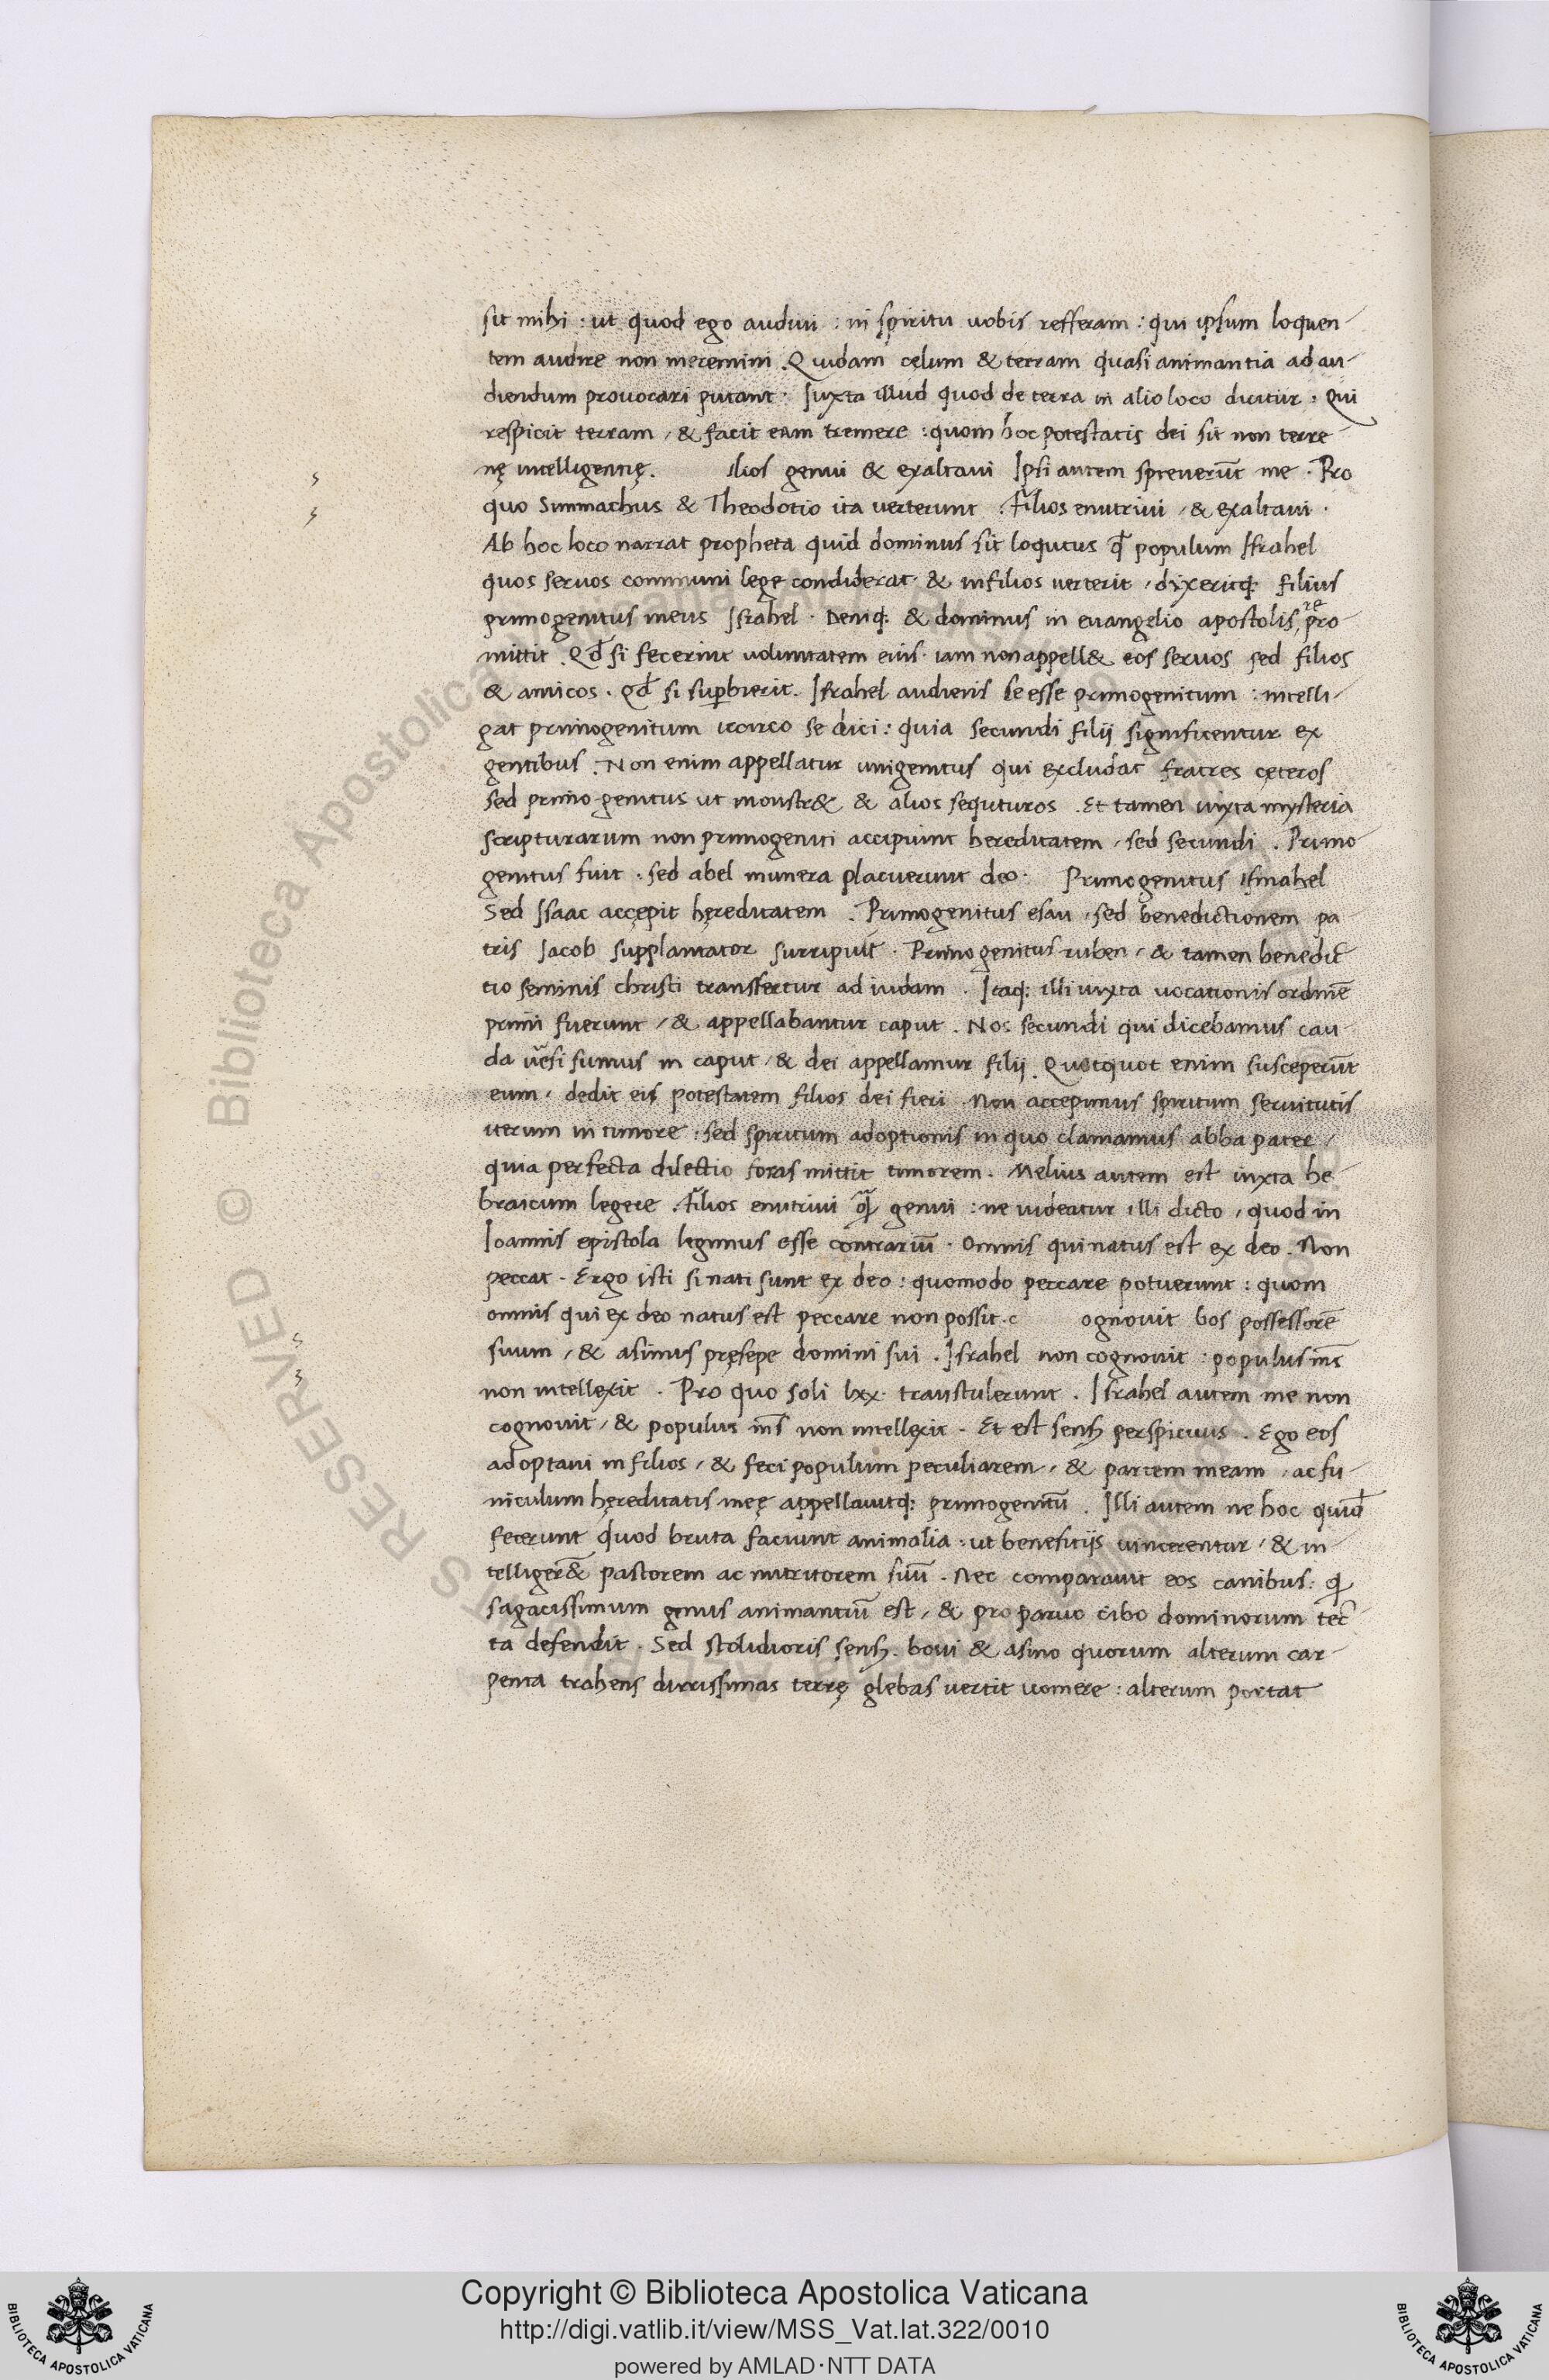 sit mihi : ut quod ego audiui : in spiritu uobis refferam : qui ipsum loquen-
tem audire non meremini . Quidam cęlum & terram quasi animantia ad au-
diendum prouocari putant . Iuxta illud quod de terra in alio loco dicitur . Qui
respicit terram , & facit eam tremere : quom hoc potestatis dei sit non terre-
nę intelligentię . ilios genui & exaltaui Ipsi autem spreuerūt me . Pro
quo Simmachus & Theodotio ita uerterunt . Filios enutriui , & exaltaui .
Ab hoc loco narrat propheta quid dominus sit loqutus populum Israhel
quos seruos communi lege condiderat & in filios uerterit , dixeritq; filius
primogenitus meus Israhel . Deniq; & dominus in euangelio apostolis re pro
mittit . Qd̄ si fecerint voluntatem eius . iam non appell& eos seruos sed filios
& amicos . Qd̄ si sup̱bierit . Israhel audiens se esse primogenitum : intelli-
gat primogenitum se dici : quia secundi filij significentur ex
gentibus . Non enim appellatur unigenitus qui excludat fratres cęteros
sed primo genitus ut monstr& & alios sequturos . Et tamen iuxta mysteria
scripturarum non primogeniti accipiunt hereditatem , sed secundi . Primo
genitus fuit . sed abel munera placuerunt deo . Primogenitus ismahel
Sed Isaac accępit hęreditatem . Primogenitus esau , sed benedictionem pa-
tris Iacob supplantator surripuit . Primogenitus ruben , & tamen benedic
tio seminis christi transfertur ad iudam . Itaq; illi iuxta uocationis ordinē
primi fuerunt , & appellabantur caput . Nos secundi qui dicebamus cau-
da ūsi sumus in caput , & dei appellamur filij . Quotquot enim susceperūt
eum , dedit eis potestatem filios dei fieri . Non accepimus spiritum seruitutis
iterum in timore : sed spiritum adoptionis in quo clamamus abba pater ,
quia perfecta dilectio foras mittit timorem . Melius autem est iuxta he-
braicum legere . Filios enutriui genui : ne uideatur illi dicto , quod in
Ioannis epistola legimus esse contrariū . Omnis qui natus est ex deo . Non
peccat . Ergo isti si nati sunt ex deo : quomodo peccare potuerunt : quom
omnis qui ex deo natus est peccare non possit . c ognouit bos possessorē
suum , & asinus pręsepe domini sui . Israhel non cognouit : populus m̄s
non intellexit . Pro quo soli lxx . transtulerunt . Israhel autem me non
cognouit , & populus m̄s non intellexit . Et est sensꝰ perspicuus . Ego eos
adoptaui in filios , & feci populum peculiarem , & partem meam , ac fu-
niculum hęreditatis meę appellauitq; primogenitū . Illi autem ne hoc quid̄
fecerunt quod bruta faciunt animalia : ut beneficijs uincerentur , & in-
telliger& pastorem ac nutritorem suū . Nec comparauit eos canibus :
sagacissimum genus animantiū est , & pro paruo cibo dominorum tec-
ta defendit . Sed stolidioris sensꝰ . boui & asino quorum alterum car-
penta trahens durissimas terrę glebas uertit uomere : alterum portat
Copyright © Biblioteca Apostolica Vaticana
http://digi.vatlib.it/view/MSS_Vat.lat.322/0010
powered by AMLAD·NTT DATA
BIBLIOTECA APOSTOLICA VATICANA
BIBLIOTECA APOSTOLICA VATICANA